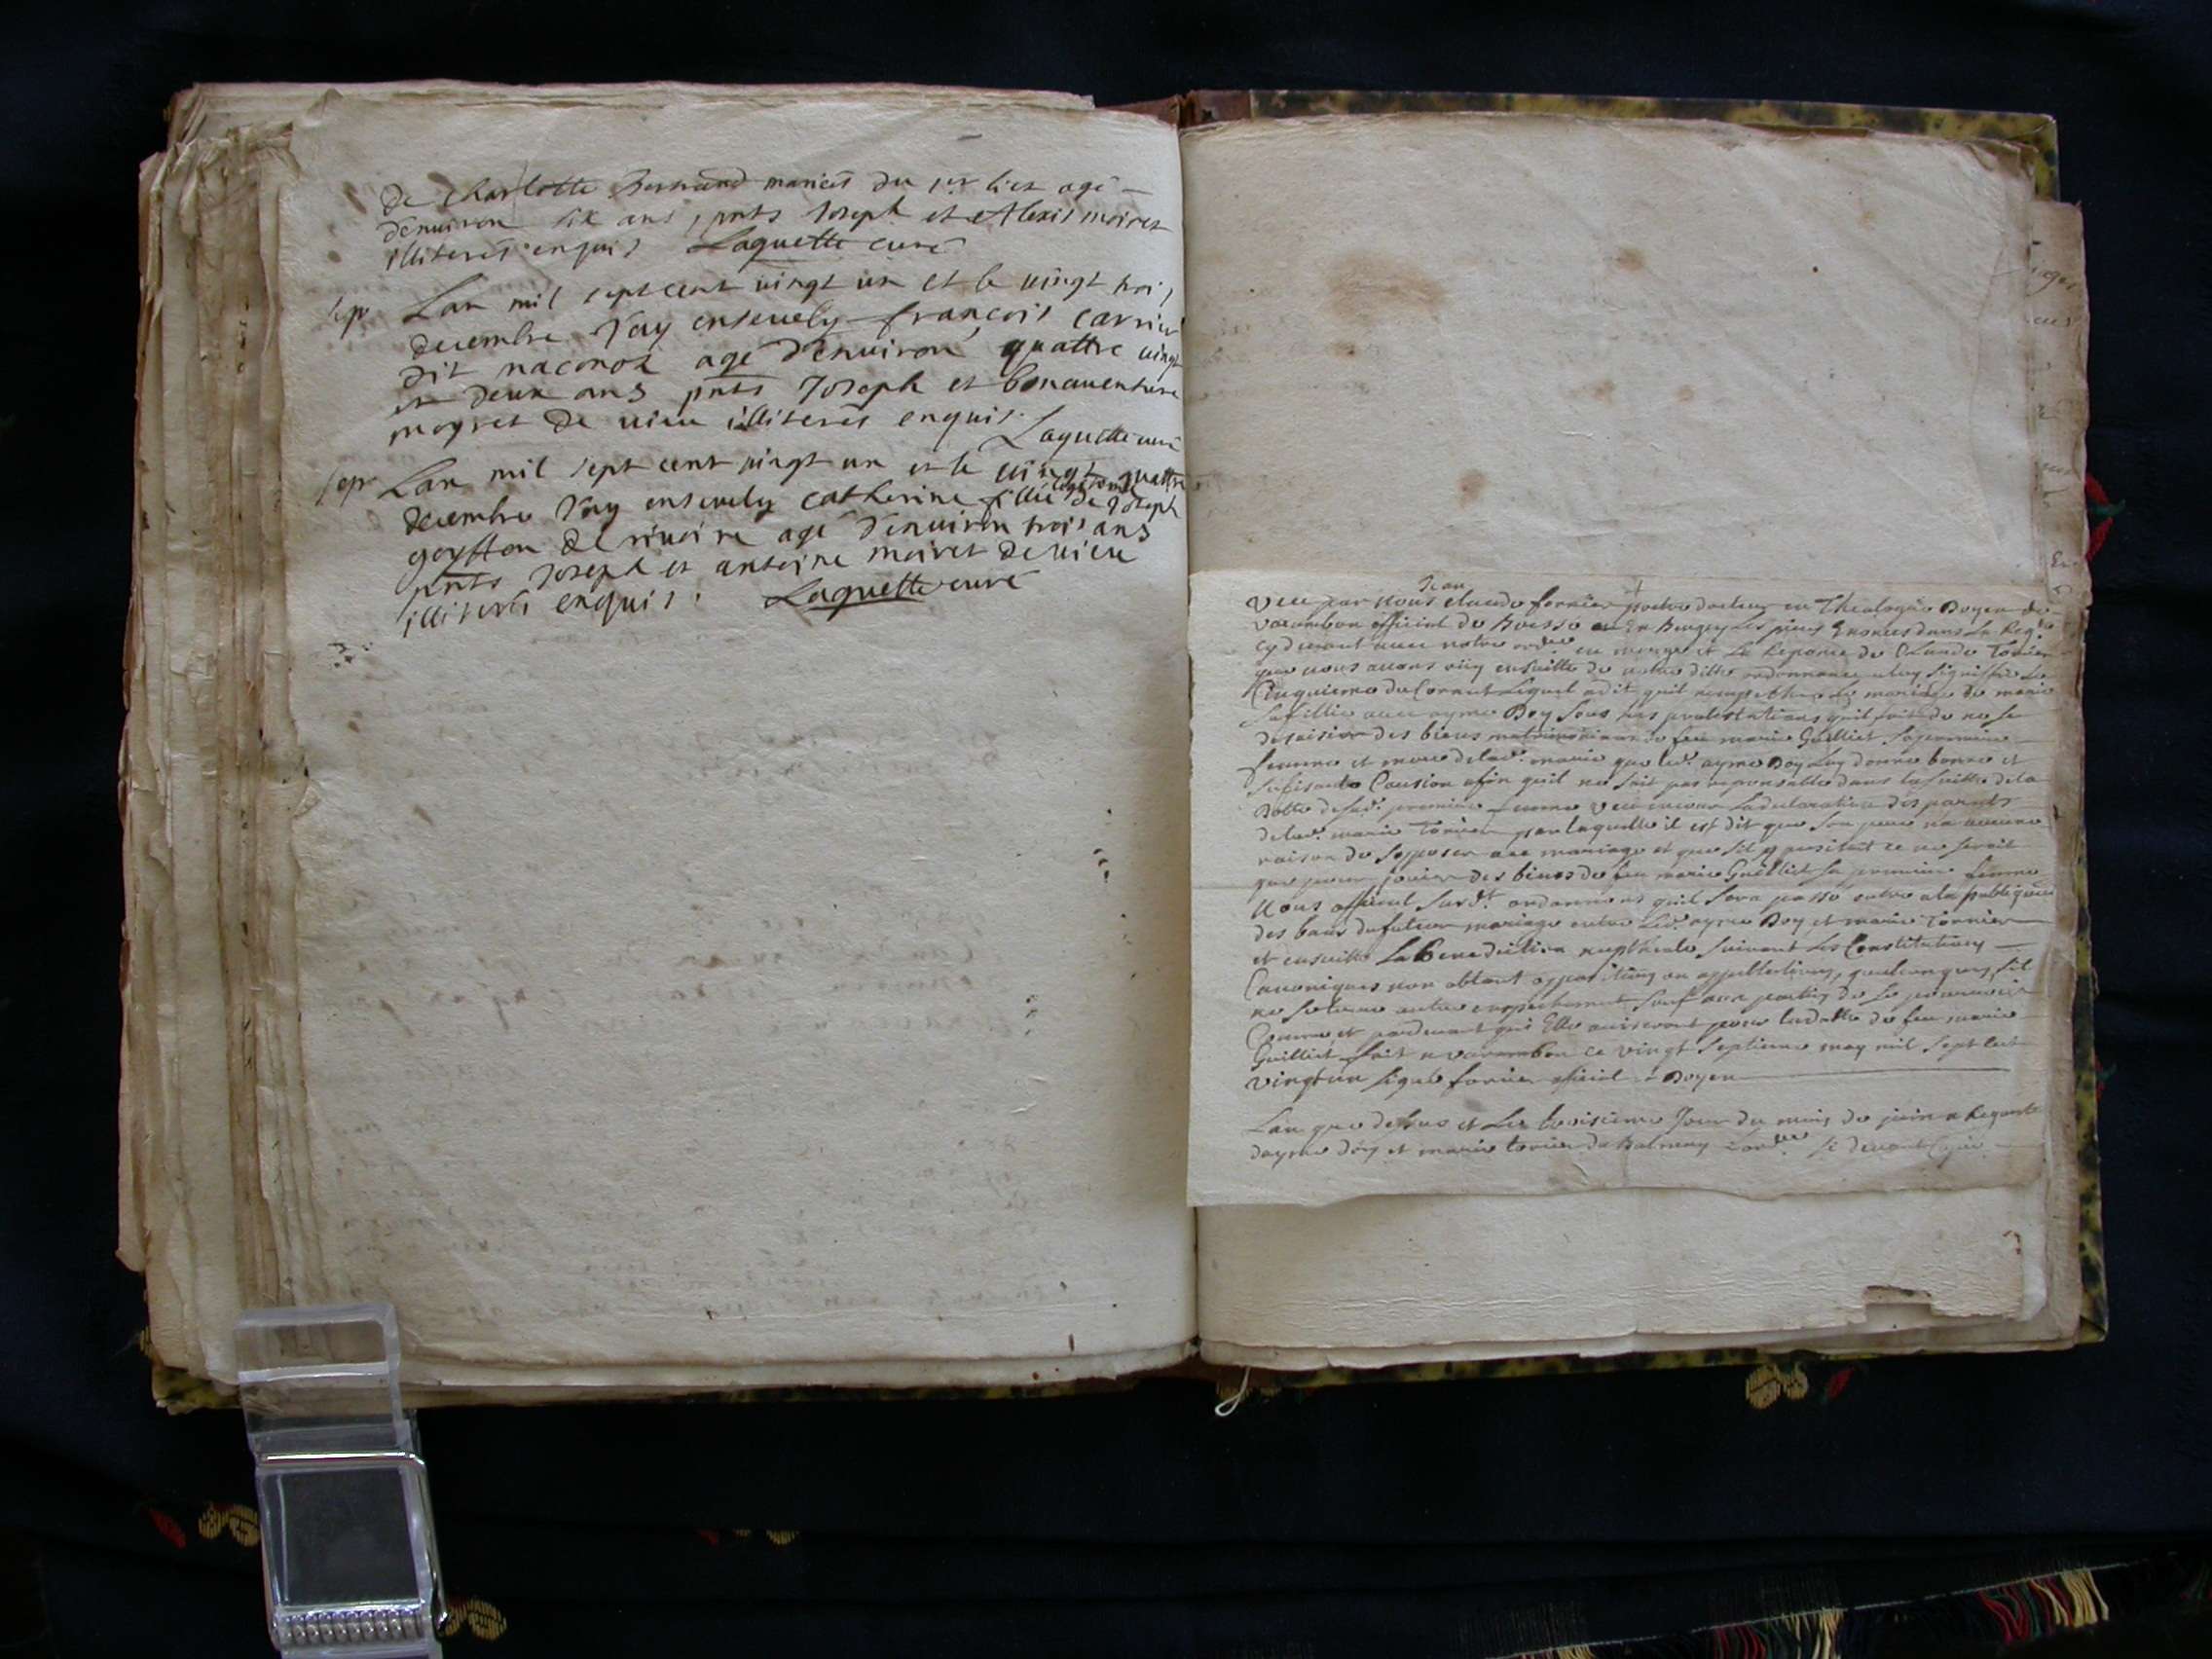 de charlotte Bertrand mariés du 1er lict agé
denuiron six ans, pnts Joseph et Alexis moiret
illiterés enquis Laquette curé
sep Lan mil sept cent vingt un et le vingt trois
decembre Jay enseuely françois carrier
dit naconod agé denuiron quattre vingt
et deux ans pnts Joseph et bonauenture
moyret de uieu illiterés enquis.
Laquette curé
sep Lan mil sept cent vingt un et le vingt quattre
decembre Jay enseuely catherine fillie legitime de Joseph
goyffon de riuoire agé denuiron trois ans
pnts Joseph et antoine moiret de uieu
illiterés enquis. Laquette curé
Jean
Veu par Nous claude forrier docteur en Theologie Doyen de
Varambon official de Bresse en Bugey Les pieces Enoncés dans La Reqte
cy devant avec notre ordce en marge et La Reponce de Claude Torrier
que nous avons oüy ensuitte de notre ditte ordonnance a luy signiffié Le
Cinquieme du Corant Lequel a dit quil nempeche Le mariage de marie
sa fillie avec ayme Doy sous les protestations quil fait de ne se
desaisir des biens de feu marie Guilliet sa premiere
femme et mere delad. marie que led. ayme Doy Luy donne bonne et
sufisante Caution afin quil ne soit pas responsable dans la suitte de la
Dotte de sad. premiere femme Veu encor La declaration des parents
de lad. marie Torrier par laquelle il est dit que son pere na aucune
raison de sopposer au mariage et que sil y ce ne seroit
que pour jouir des biens de feu marie Guilliet sa premiere femme
Nous official susdt. ordonnons quil sera passé outre a la publicaon
des bans du futur mariage entre led. ayme Doy et marie Torrier
et ensuitte La Benediction nupthiale suivant Les Constitutions
Canoniques non obtant oppositions ou appellations quelconques, sil
ne se treuve autre empechement sauf aux parties de se pourvoir
Comme et pardevant qui Elle aviseront pour la dotte de feu marie
Guilliet fait a varambon ce vingt septieme may mil sept cent
vingt un signé forrier official Doyen
Lan que dessus et Le troisieme Jour du mois de juin a Requete
dayme doy et marie torrier de Balmay devant